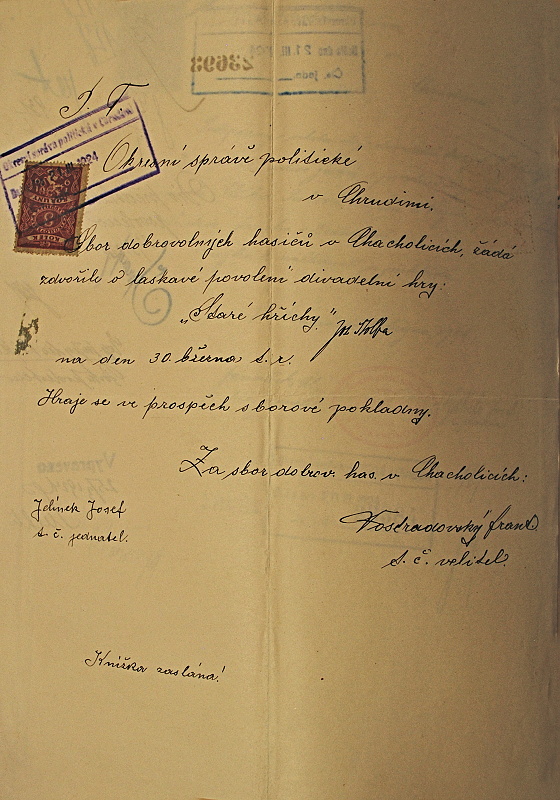 P. T.
Okresní správě politické
v Chrudimi.
Sbor dobrovolných hasičů v Chacholicích, žádá
zdvořile o laskavé povolení divadelní hry:
„Staré hříchy" Jos Štolba
na den 30. března t. r.
Hraje se ve prospěch sborové pokladny.
Za sbor dobrov. has. v Chacholicích:
Jelínek Josef
t. č. jednatel.
Vostradovský Frant
t. č. velitel.
Knížka zaslána!
Okresní správa politická v Chrudimi
23693